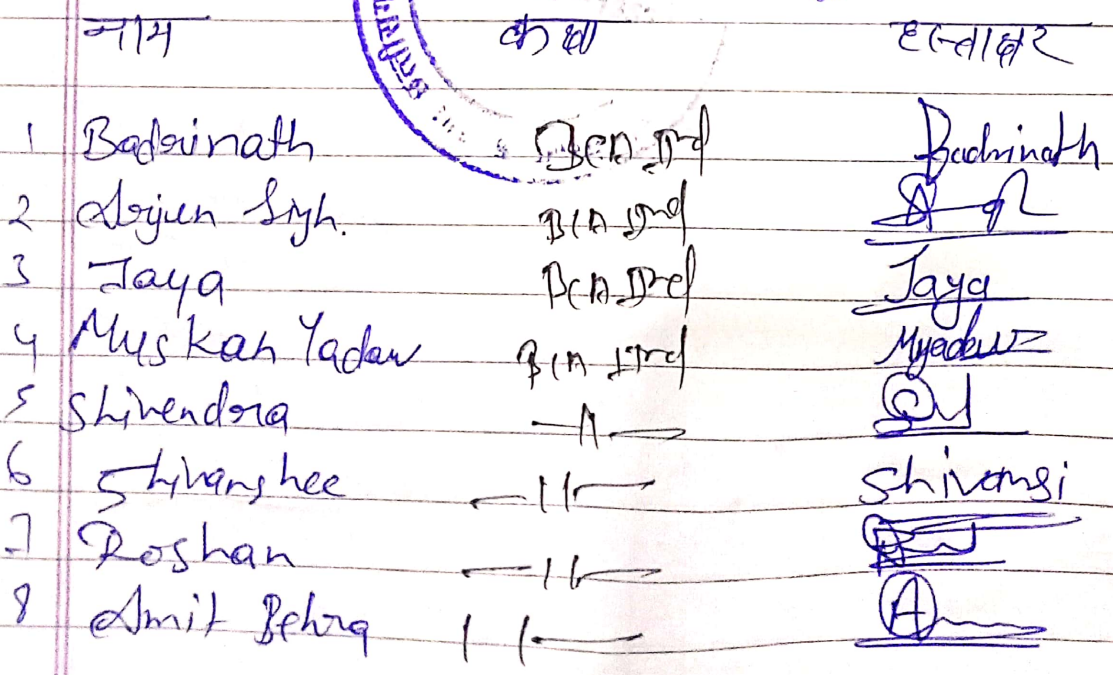 नाम कक्षा हस्ताक्षर
1 Badrinath BCA IInd Badrinath
2 Arjun Sigh. BCA IInd
3 Jaya BCA IInd Jaya
4 Muskan Yadav BCA IInd Myadav
5 Shivendra —〃—
6 Shivanshee —〃— Shivansi
7 Roshan —〃—
8 Amit Behra 〃— A